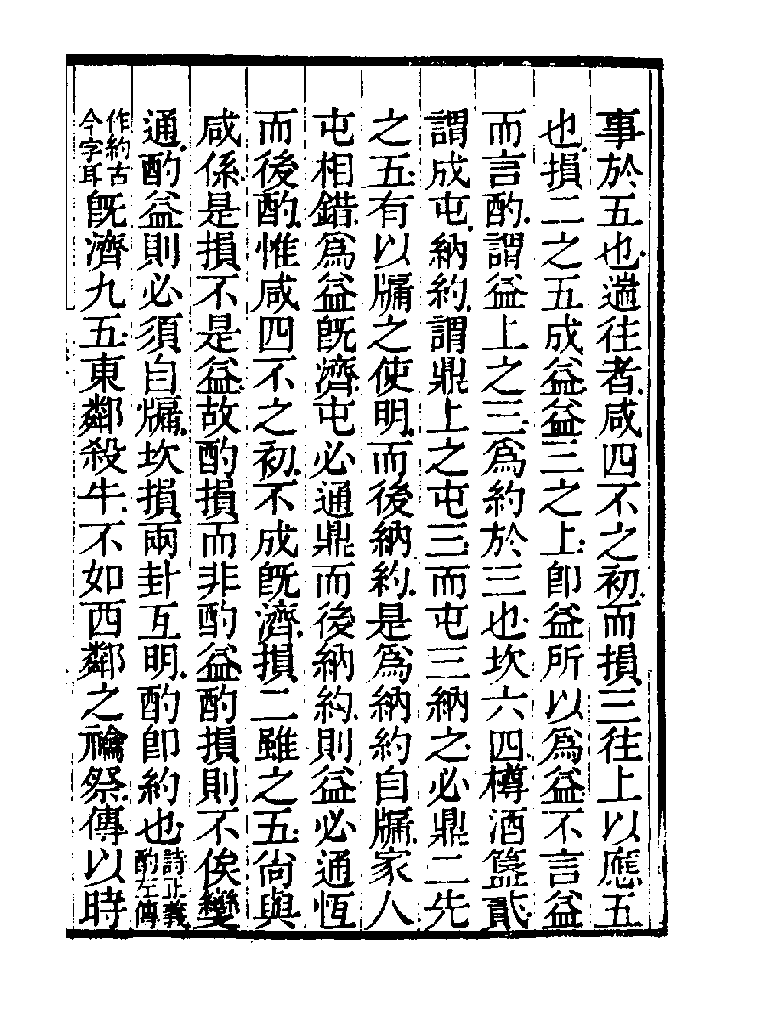 事於五也遄往者咸四不之初而損三往上以應五
也損二之五成益益三之上卽益所以爲益不言益
而言酌謂益上之三爲約於三也坎六四樽酒簋貳
謂成屯納約謂鼎上之屯三而屯三納之必鼎二先
之五有以牖之使明而後納約是爲納約自牖家人
屯相錯爲益旣濟屯必通鼎而後納約則益必通恆
而後酌惟咸四不之初不成旣濟損二雖之五尙與
咸係是損不是益故酌損而非酌益酌損則不俟變
通酌益則必須自牖坎損兩卦互明酌卽約也詩正義酌左傳
作約古今字耳旣濟九五東鄰殺牛不如西鄰之禴祭傳以時